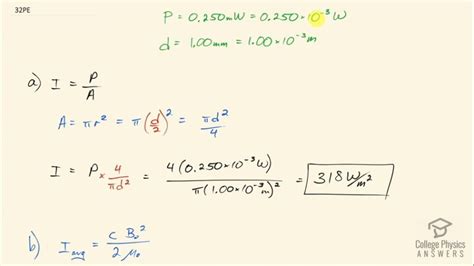 32PE
P = 0.250 mW = 0.250 × 10⁻³ W
d = 1.00 mm = 1.00 × 10⁻³ m
a) I = P/A
A = πr² = π(d/2)² = πd²/4
I = P × 4/πd² = 4(0.250×10⁻³ W)/π(1.00×10⁻³ m)² = 318 W/m²
b) I_avg = cB₀²/2μ₀
College Physics
ANSWERS